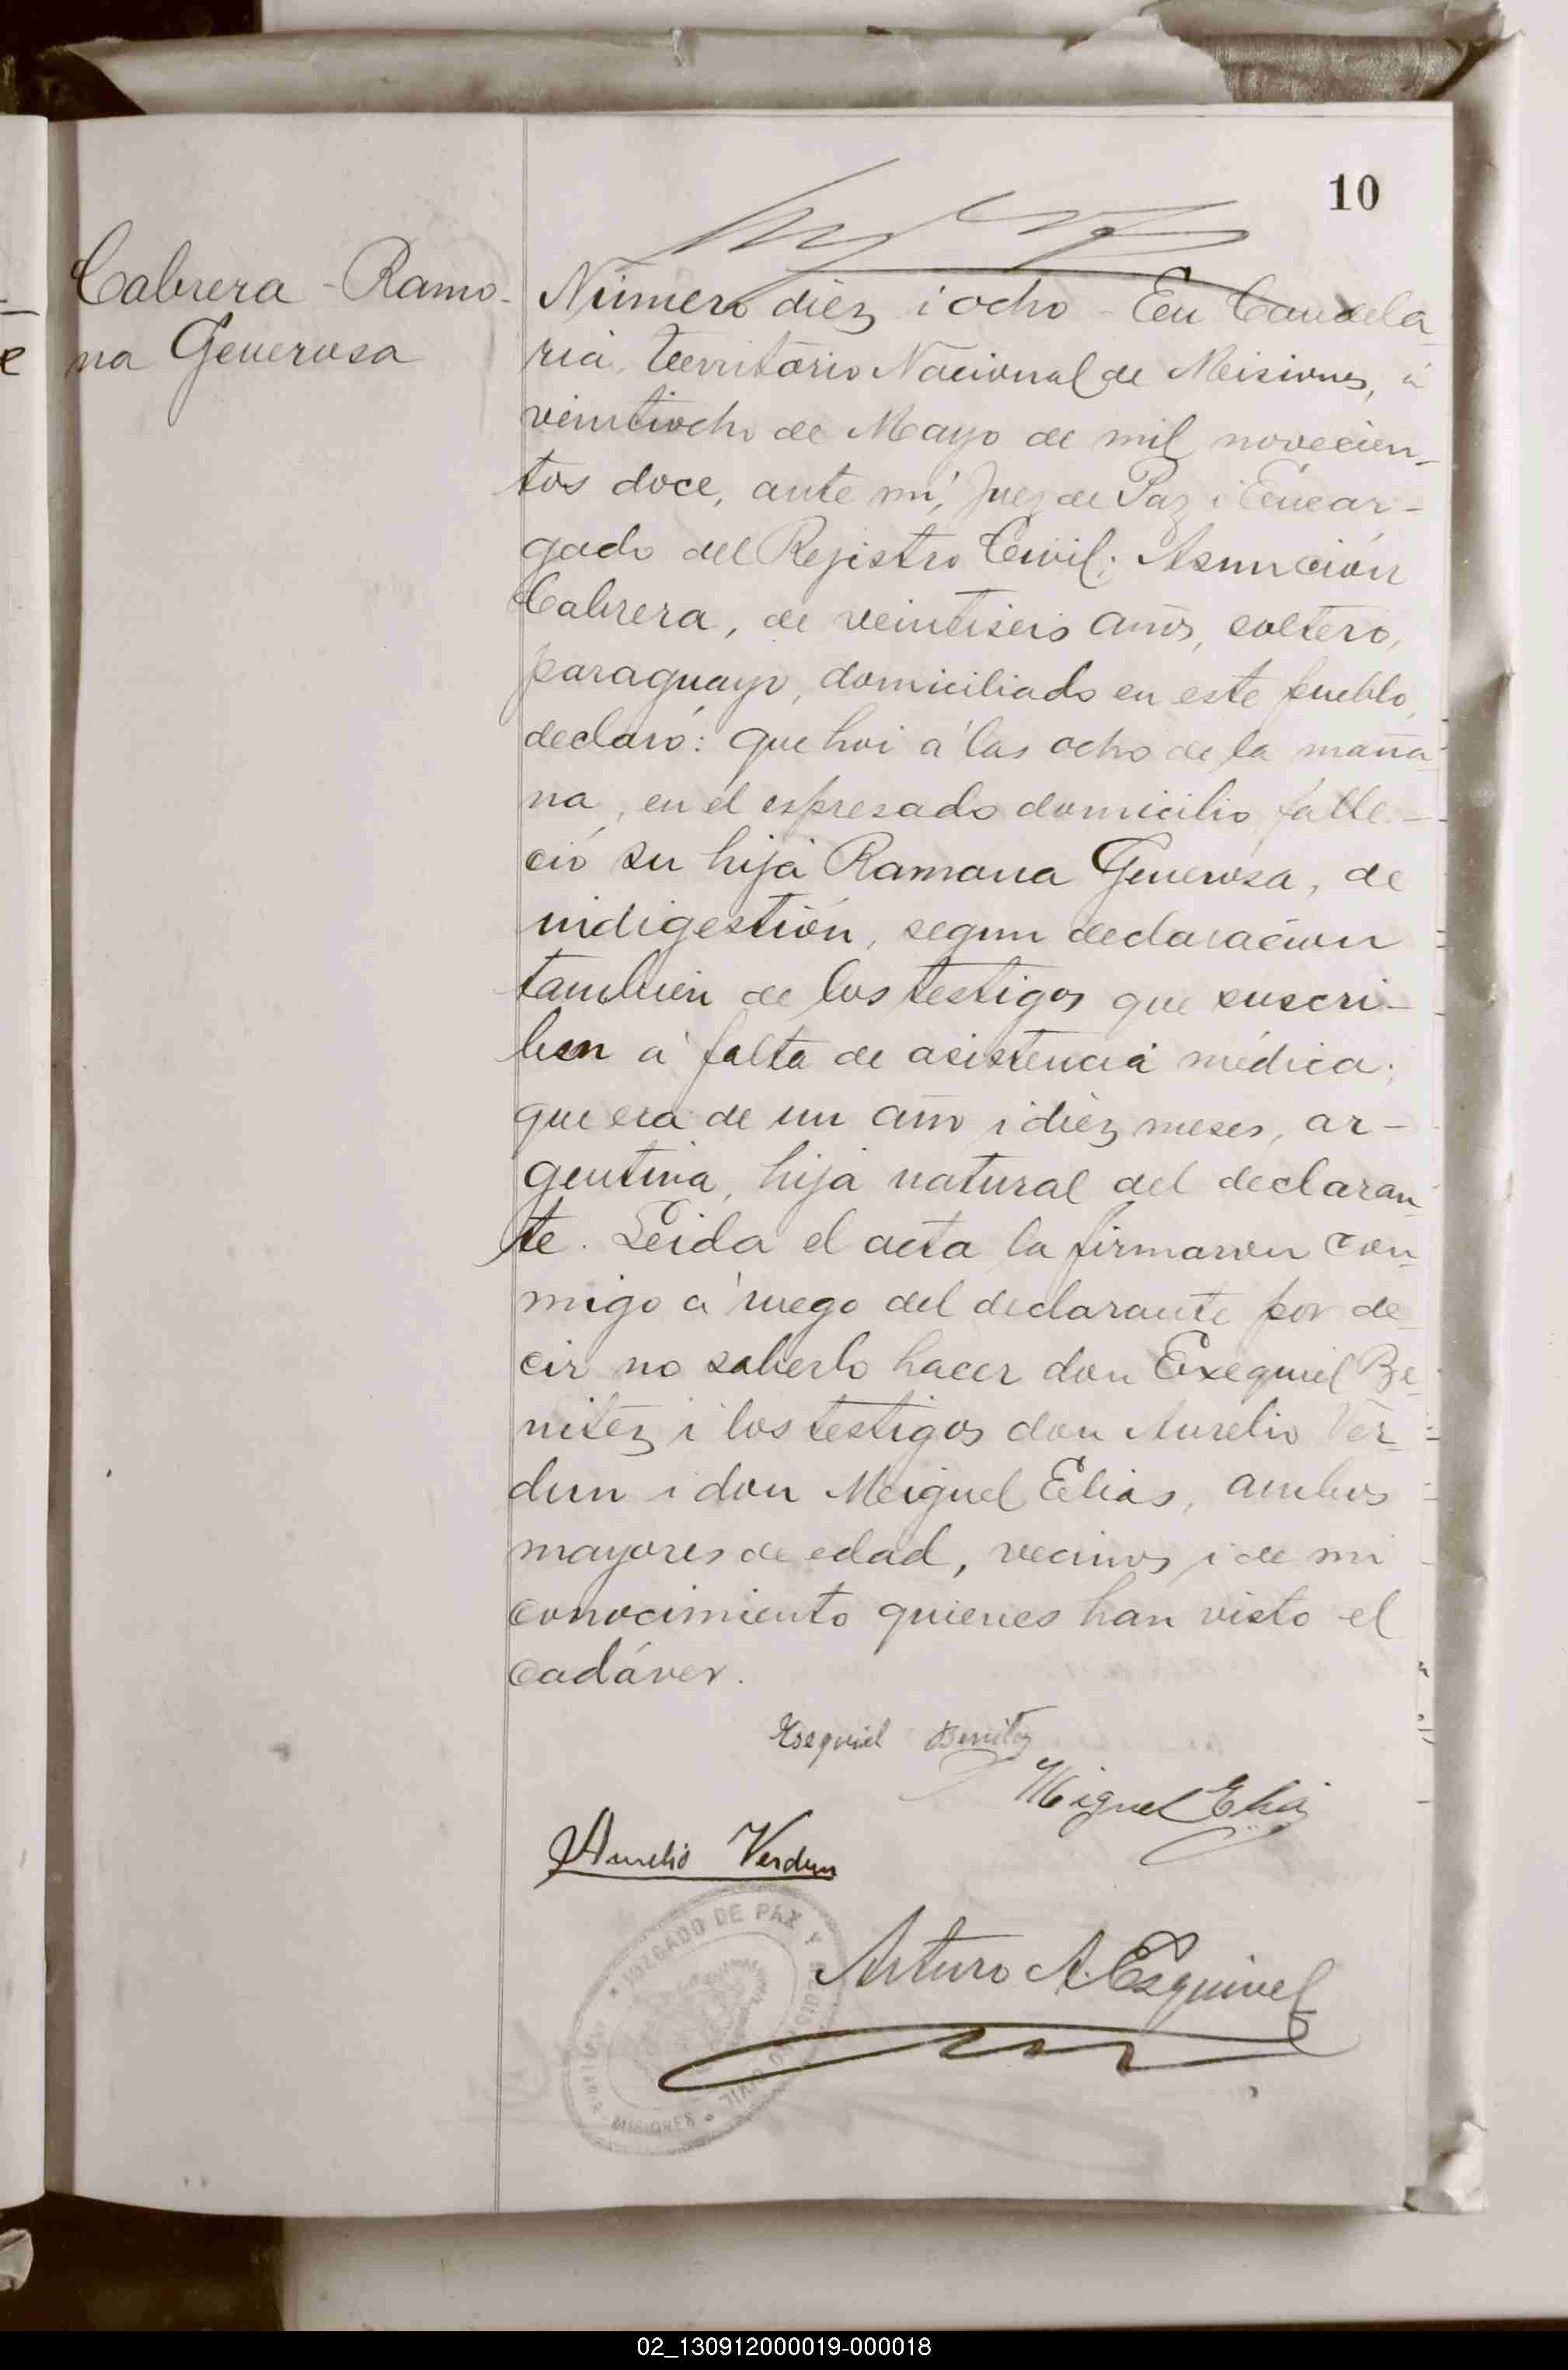 10
Cabrera - Ramo-
na Generosa
Número diez i ocho - En Candela
ria, Territorio Nacional de Misiones, á
veintiocho de Mayo de mil novecien-
tos doce, ante mí, Juez de Paz i Encar-
gado del Rejistro Civil; Asunción
Cabrera, de veintiseis años, soltero,
paraguayo, domiciliado en este pueblo,
declaró: que hoi á las ocho de la maña-
na, en el espresado domicilio falle-
ció su hija Ramona Generosa, de
indigestión, segun declaración
tambien de los testigos que suscri-
ben á falta de asistencia médica;
que era de un año i diez meses, ar-
gentina, hija natural del declaran-
te. Leida el acta la firmaron con-
migo á ruego del declarante por de-
cir no saberlo hacer don Exequiel Be-
nitez i los testigos don Aurelio Ver-
dun i don Miguel Elias, ambos
mayores de edad, vecinos i de mi
conocimiento quienes han visto el
cadáver.
Esequiel Benitez
Miguel Elias
Aurelio Verdun
JUZGADO DE PAZ Y
CIVIL
MISIONES
Arturo A. Esquivel
02_130912000019-000018